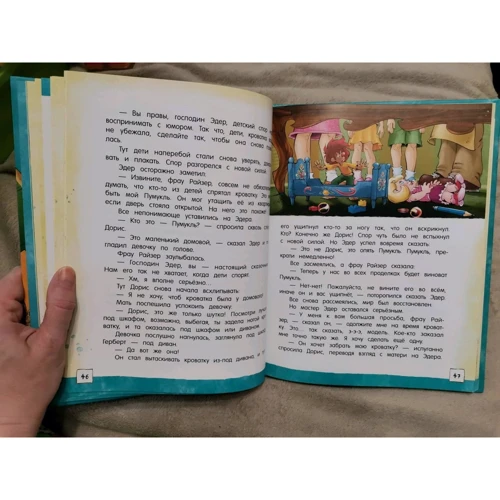 — Вы правы, господин Эдер, детский спор надо
воспринимать с юмором. Так что, дети, кроватка
не убежала, сделайте так, чтобы она снова
лась.
Тут дети наперебой стали снова уверять,
вать и плакать. Спор разгорелся с новой силой.
Эдер осторожно заметил:
— Извините, фрау Райзер, совсем не обязательно
думать, что кто-то из детей спрятал кроватку. Это
быть мой Пумукль. Он мог утащить её из коридора
если дверь стояла открытой. На него это похоже
Все непонимающе уставились на Эдера.
— Кто это — Пумукль? — спросила сквозь
Дорис.
— Это маленький домовой, — сказал Эдер и
гладил девочку по голове.
Фрау Райзер заулыбалась.
— Господин Эдер, вы — настоящий
Нам его так не хватает, когда дети спорят.
— Хм, я вполне серьёзно...
Тут Дорис снова начала всхлипывать:
— Я не хочу, чтоб кроватка была у домового!
Мать поспешила успокоить девочку:
— Дорис, это же только шутка! Посмотри лучше
под шкафом, возможно, выбегая, ты задела ногой
ватку, и та оказалась под шкафом или диваном.
Девочка послушно нагнулась, заглянула под шкаф,
Герберт — под диван.
— Да вот же она!
Он стал вытаскивать кроватку из-под дивана, и тут
46
его ущипнул кто-то за ногу так, что он вскрикнул.
Кто? Конечно же Дорис! Спор чуть было не вспыхнул
с новой силой. Но Эдер успел вовремя сказать:
— Это не Дорис, это опять Пумукль. Пумукль, пре-
крати немедленно!
Все засмеялись, а фрау Райзер сказала:
— Теперь у нас во всех проделках будет виноват
Пумукль.
— Нет-нет! Пожалуйста, не вините его во всём,
иначе он и вас ущипнёт, — поторопился сказать Эдер.
Все снова рассмеялись, мир был восстановлен.
Но Эдер оставался серьёзным.
— У меня к вам большая просьба, фрау Рай-
зер, — сказал он, — одолжите мне на время кроват-
ку. Это, так сказать, э-э-э, модель. Кое-кто заказал
мне точно такую же. Я хочу сделать ещё одну.
— Он хочет забрать мою кроватку? — испуганно
спросила Дорис, переводя взгляд с матери на Эдера.
47